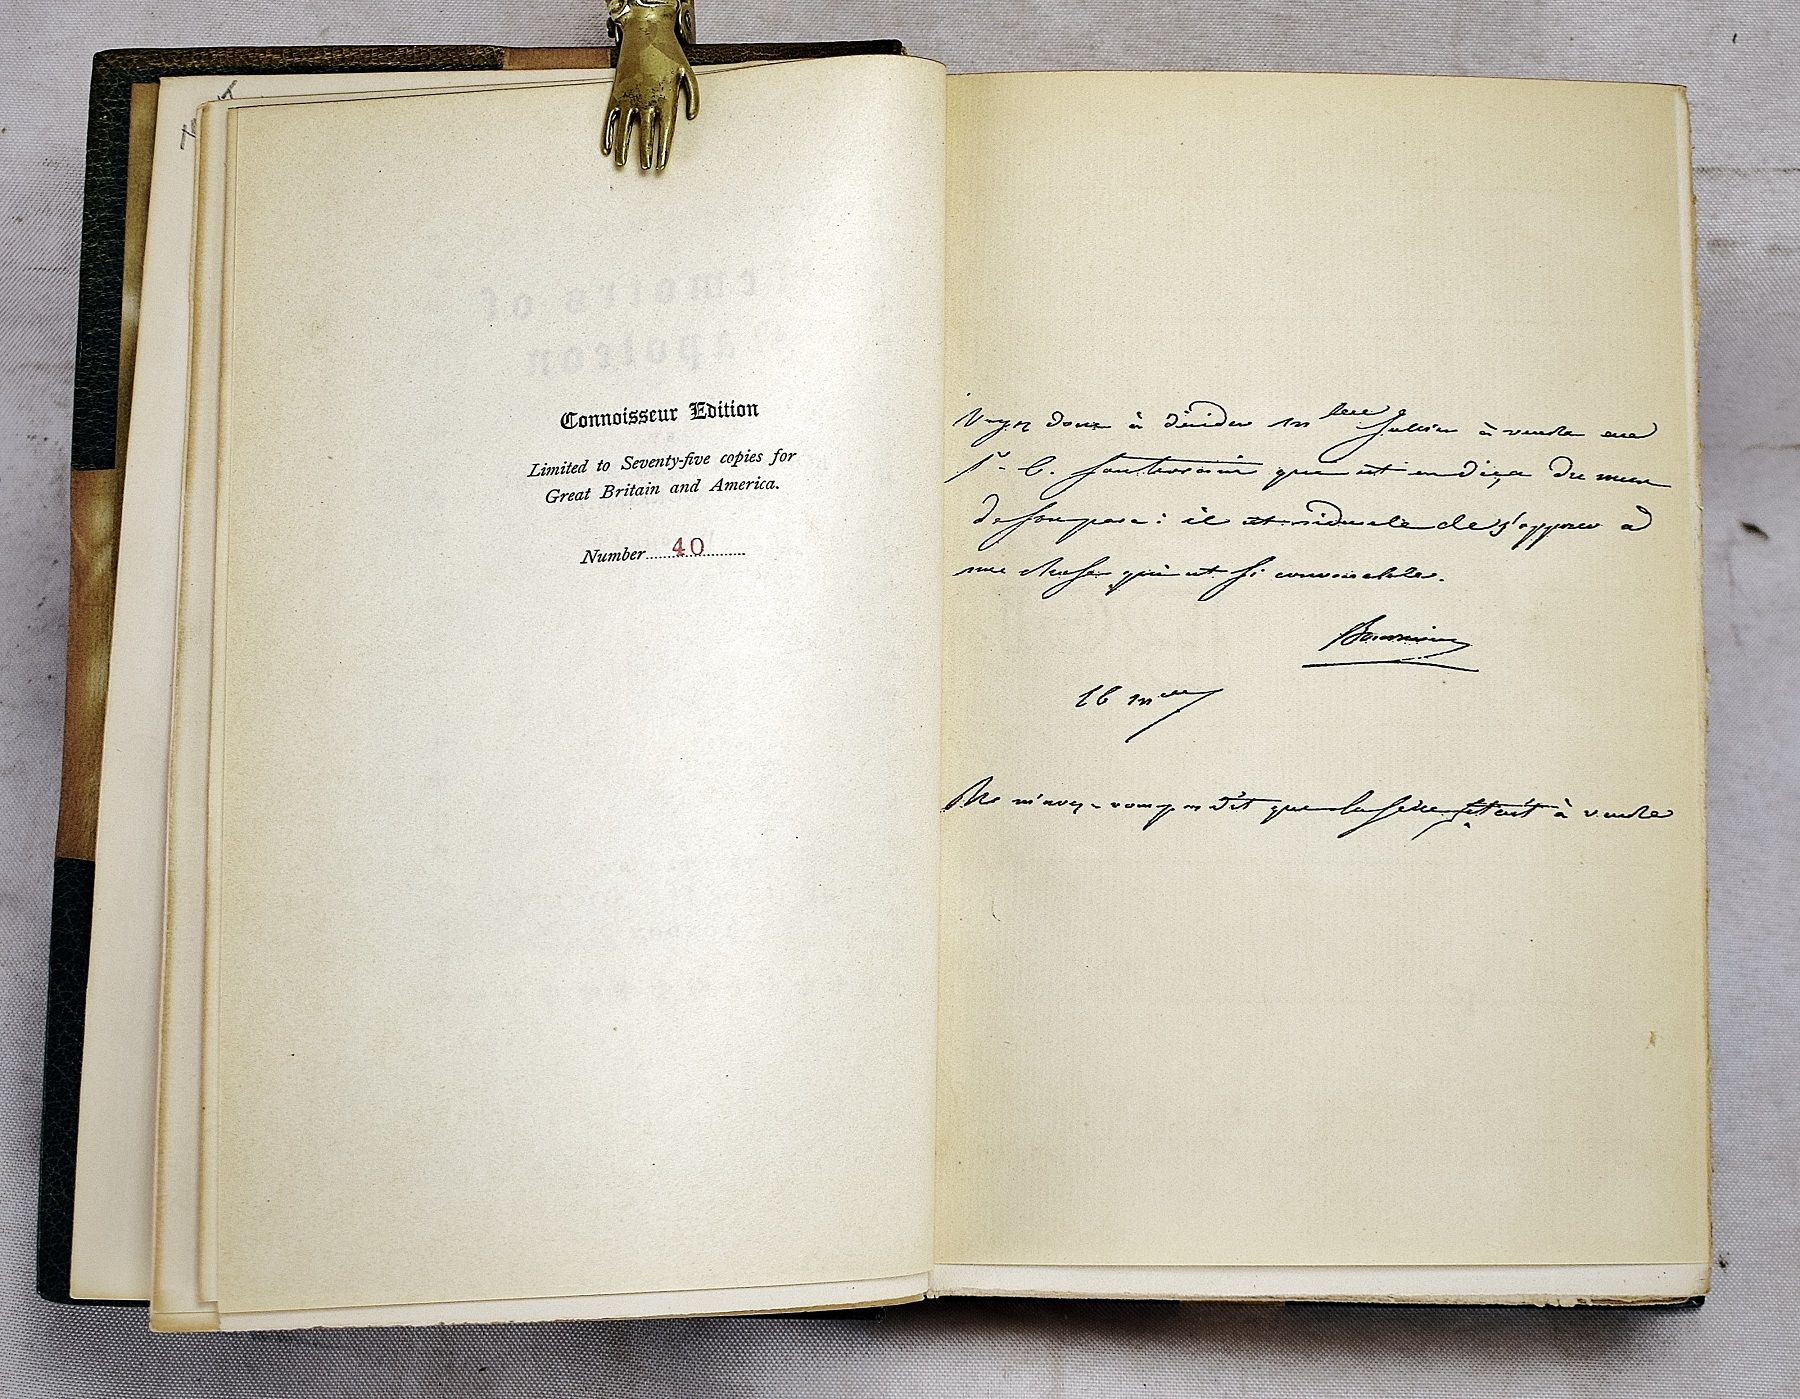 Connoisseur Edition
Limited to Seventy-five copies for
Great Britain and America.
Number 40
Voyez donc à décider à vendre
que est en deça du mur
de son parc : il est ridicule de s'opposer à
une chose qui est si convenable.
Bourrienne
16
Ne m'avez-vous pas dit que la était à vendre